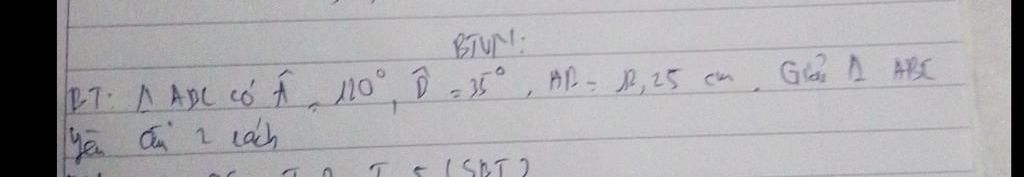 BTVN:
BT: Δ ABC có Â = 120°, B̂ = 35°, AB = 12,25 cm. Giải Δ ABC
Yêu cầu 2 cách
(SBT)